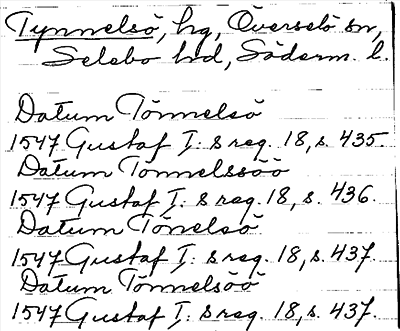 Tynnelsö, hg, Överselö sn,
Selebo hd, Söderm. l.
Datum Tönnelsö
1547 Gustaf I:s reg. 18, s. 435.
Datum Tonnelssöö
1547 Gustaf I:s reg. 18, s. 436.
Datum Tönelsö
1547 Gustaf I:s reg. 18, s. 437.
Datum Tönnelsöö
1547 Gustaf I:s reg. 18, s. 437.